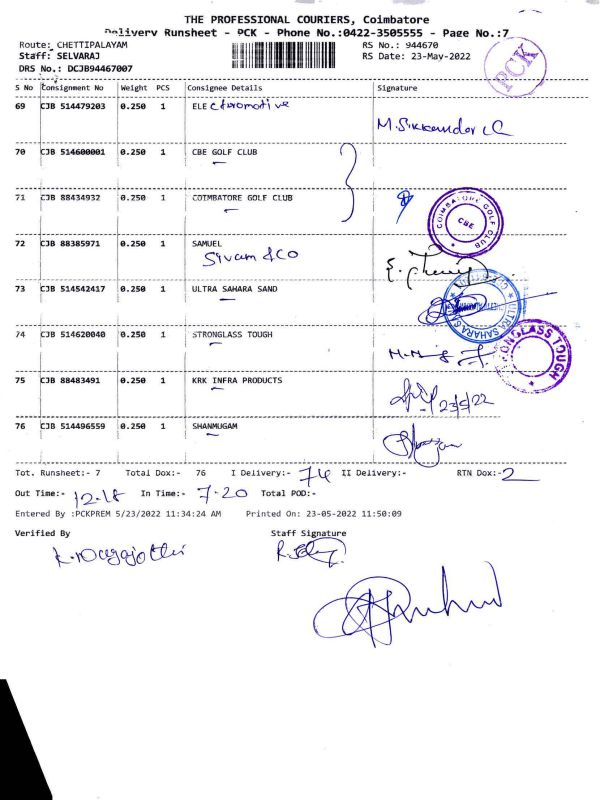 THE PROFESSIONAL COURIERS, Coimbatore
Delivery Runsheet - PCK - Phone No.:0422-3505555 - Page No.:7
Route: CHETTIPALAYAM RS No.: 944670
Staff: SELVARAJ RS Date: 23-May-2022
DRS No.: DCJB94467007
PCK
S No Consignment No Weight PCS Consignee Details Signature
69 CJB 514479203 0.250 1 ELE
70 CJB 514600001 0.250 1 CBE GOLF CLUB
71 CJB 88434932 0.250 1 COIMBATORE GOLF CLUB
COIMBATORE GOLF CLUB
CBE
72 CJB 88385971 0.250 1 SAMUEL
Sivam & CO
73 CJB 514542417 0.250 1 ULTRA SAHARA SAND
ULTRA SAHARA
74 CJB 514620040 0.250 1 STRONGLASS TOUGH
ONGLASS TOUGH
75 CJB 88483491 0.250 1 KRK INFRA PRODUCTS
23/5/22
76 CJB 514496559 0.250 1 SHANMUGAM
Tot. Runsheet:- 7 Total Dox:- 76 I Delivery:- 74 II Delivery:- RTN Dox:- 2
Out Time:- 12.18 In Time:- 7-20 Total POD:-
Entered By :PCKPREM 5/23/2022 11:34:24 AM Printed On: 23-05-2022 11:50:09
Verified By Staff Signature